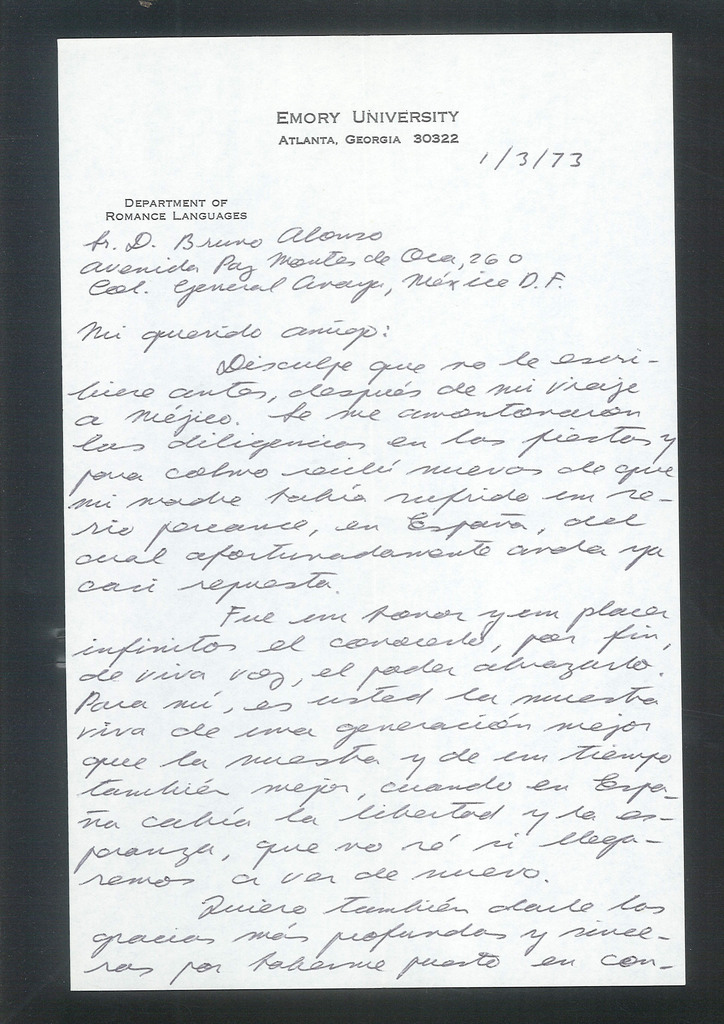 EMORY UNIVERSITY
ATLANTA, GEORGIA 30322
1/3/73
DEPARTMENT OF
ROMANCE LANGUAGES
Sr. D. Bruno Alonso
Avenida Paz Montes de Oca, 260
Col. General Anaya, México D.F.
Mi querido amigo:
Disculpe que no le escri-
biese antes, después de mi viaje
a Méjico. Se me amontonaron
las diligencias en las fiestas y
para colmo recibí nuevas de que
mi madre había sufrido un se-
rio percance, en España, del
cual afortunadamente anda ya
casi repuesta.
Fue un honor y un placer
infinitos el conocerlo, por fin,
de viva voz, el poder abrazarlo.
Para mí, es usted la muestra
viva de una generación mejor
que la nuestra y de un tiempo
también mejor, cuando en Espa-
ña cabía la libertad y la es-
peranza, que no sé si llega-
remos a ver de nuevo.
Quiero también darle las
gracias más profundas y since-
ras por haberme puesto en con-